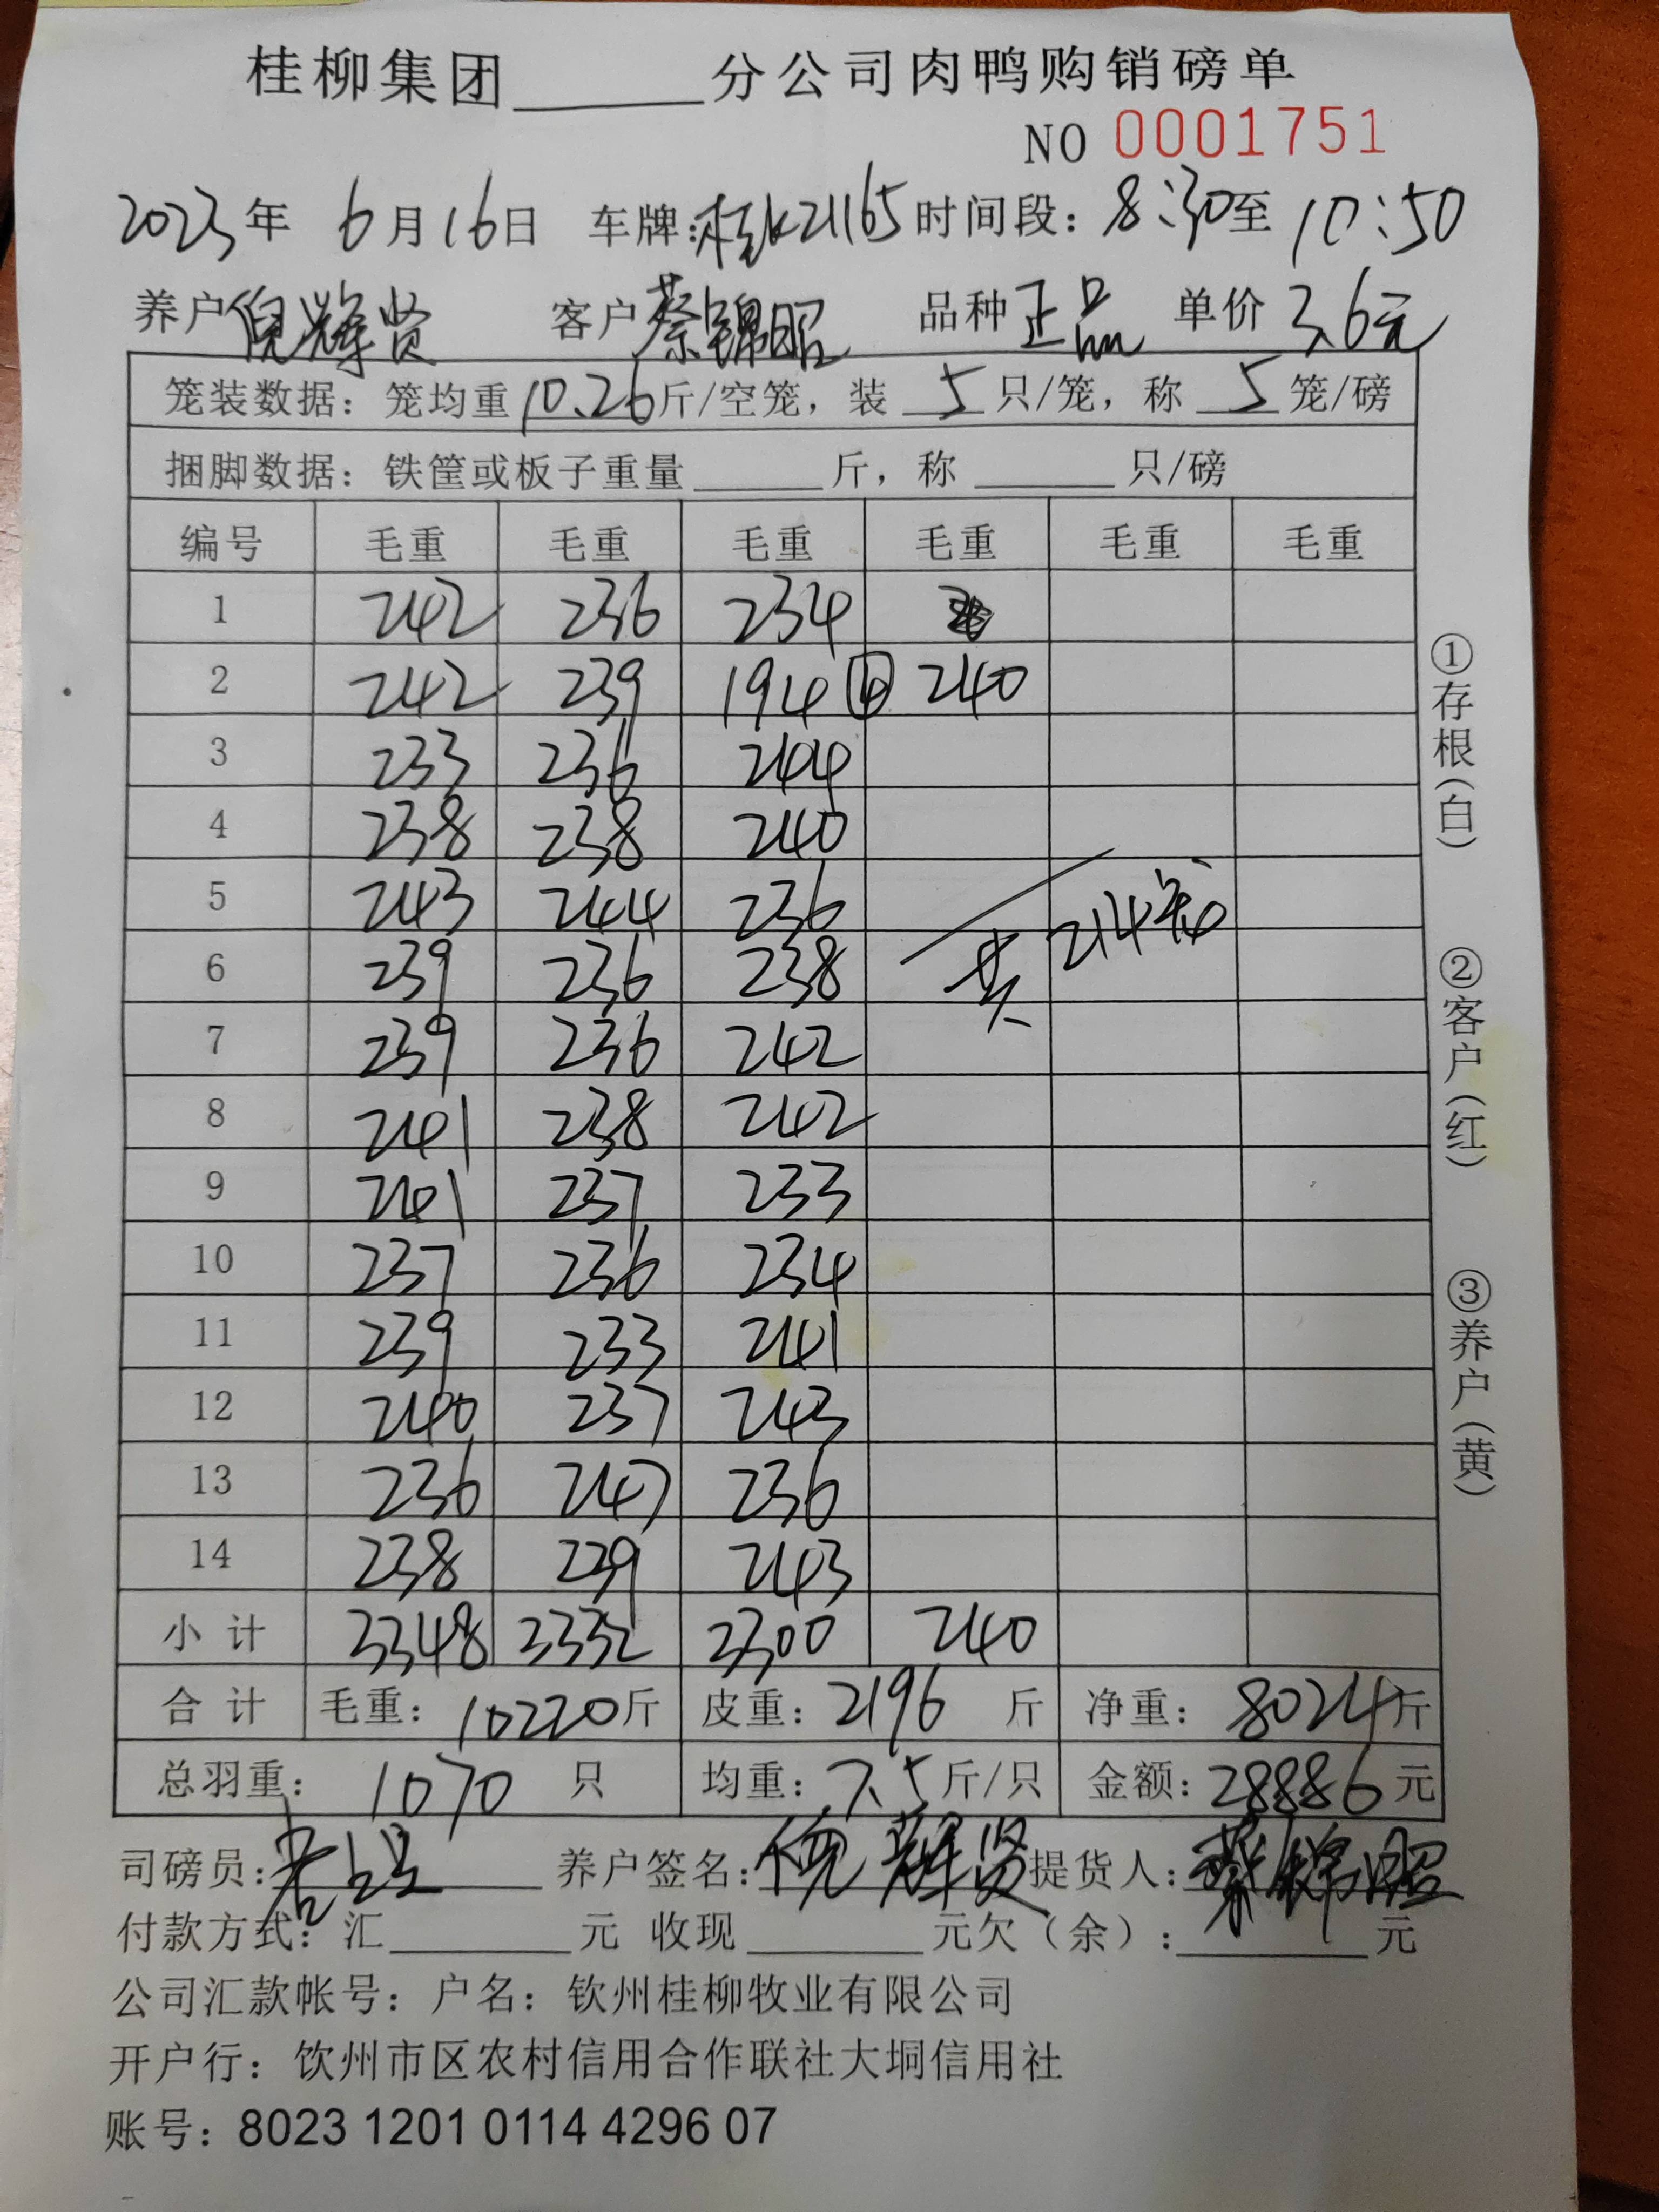 桂柳集团______分公司肉鸭购销磅单
NO 0001751
2023年 6月16日 车牌:桂K21165 时间段: 8:30至 10:50
养户 倪辉贤 客户 蔡锦昭 品种 正品 单价 3.6元
笼装数据: 笼均重 10.26斤/空笼, 装 5 只/笼, 称 5 笼/磅
捆脚数据: 铁筐或板子重量______斤, 称______只/磅
编号 毛重 毛重 毛重 毛重 毛重 毛重
1 242 236 234
2 242 239 194 ④ 240
3 233 236 244
4 238 238 240
5 243 244 236
6 239 236 238 共 214笼
7 239 236 242
8 241 238 242
9 241 237 233
10 237 236 234
11 239 233 241
12 240 237 243
13 236 247 236
14 238 239 243
小计 3348 3332 3300 240
合计 毛重: 10220斤 皮重: 2196 斤 净重: 8024斤
总羽重: 1070 只 均重: 7.5斤/只 金额: 28886元
司磅员: 养户签名: 倪辉贤 提货人: 蔡锦昭
付款方式: 汇______元 收现______元欠(余):______元
公司汇款帐号: 户名: 钦州桂柳牧业有限公司
开户行: 钦州市区农村信用合作联社大垌信用社
账号: 8023 1201 0114 4296 07
①存根(白)
②客户(红)
③养户(黄)